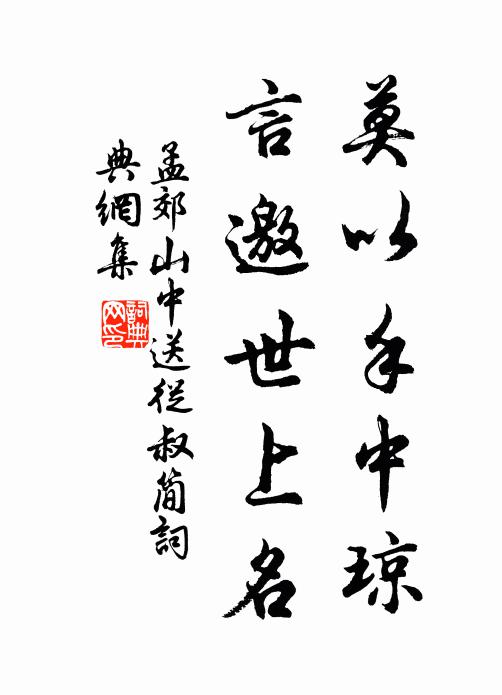 莫以手中琼
言邀世上名
孟郊山中送從叔简詞
典網集
詞典
网印